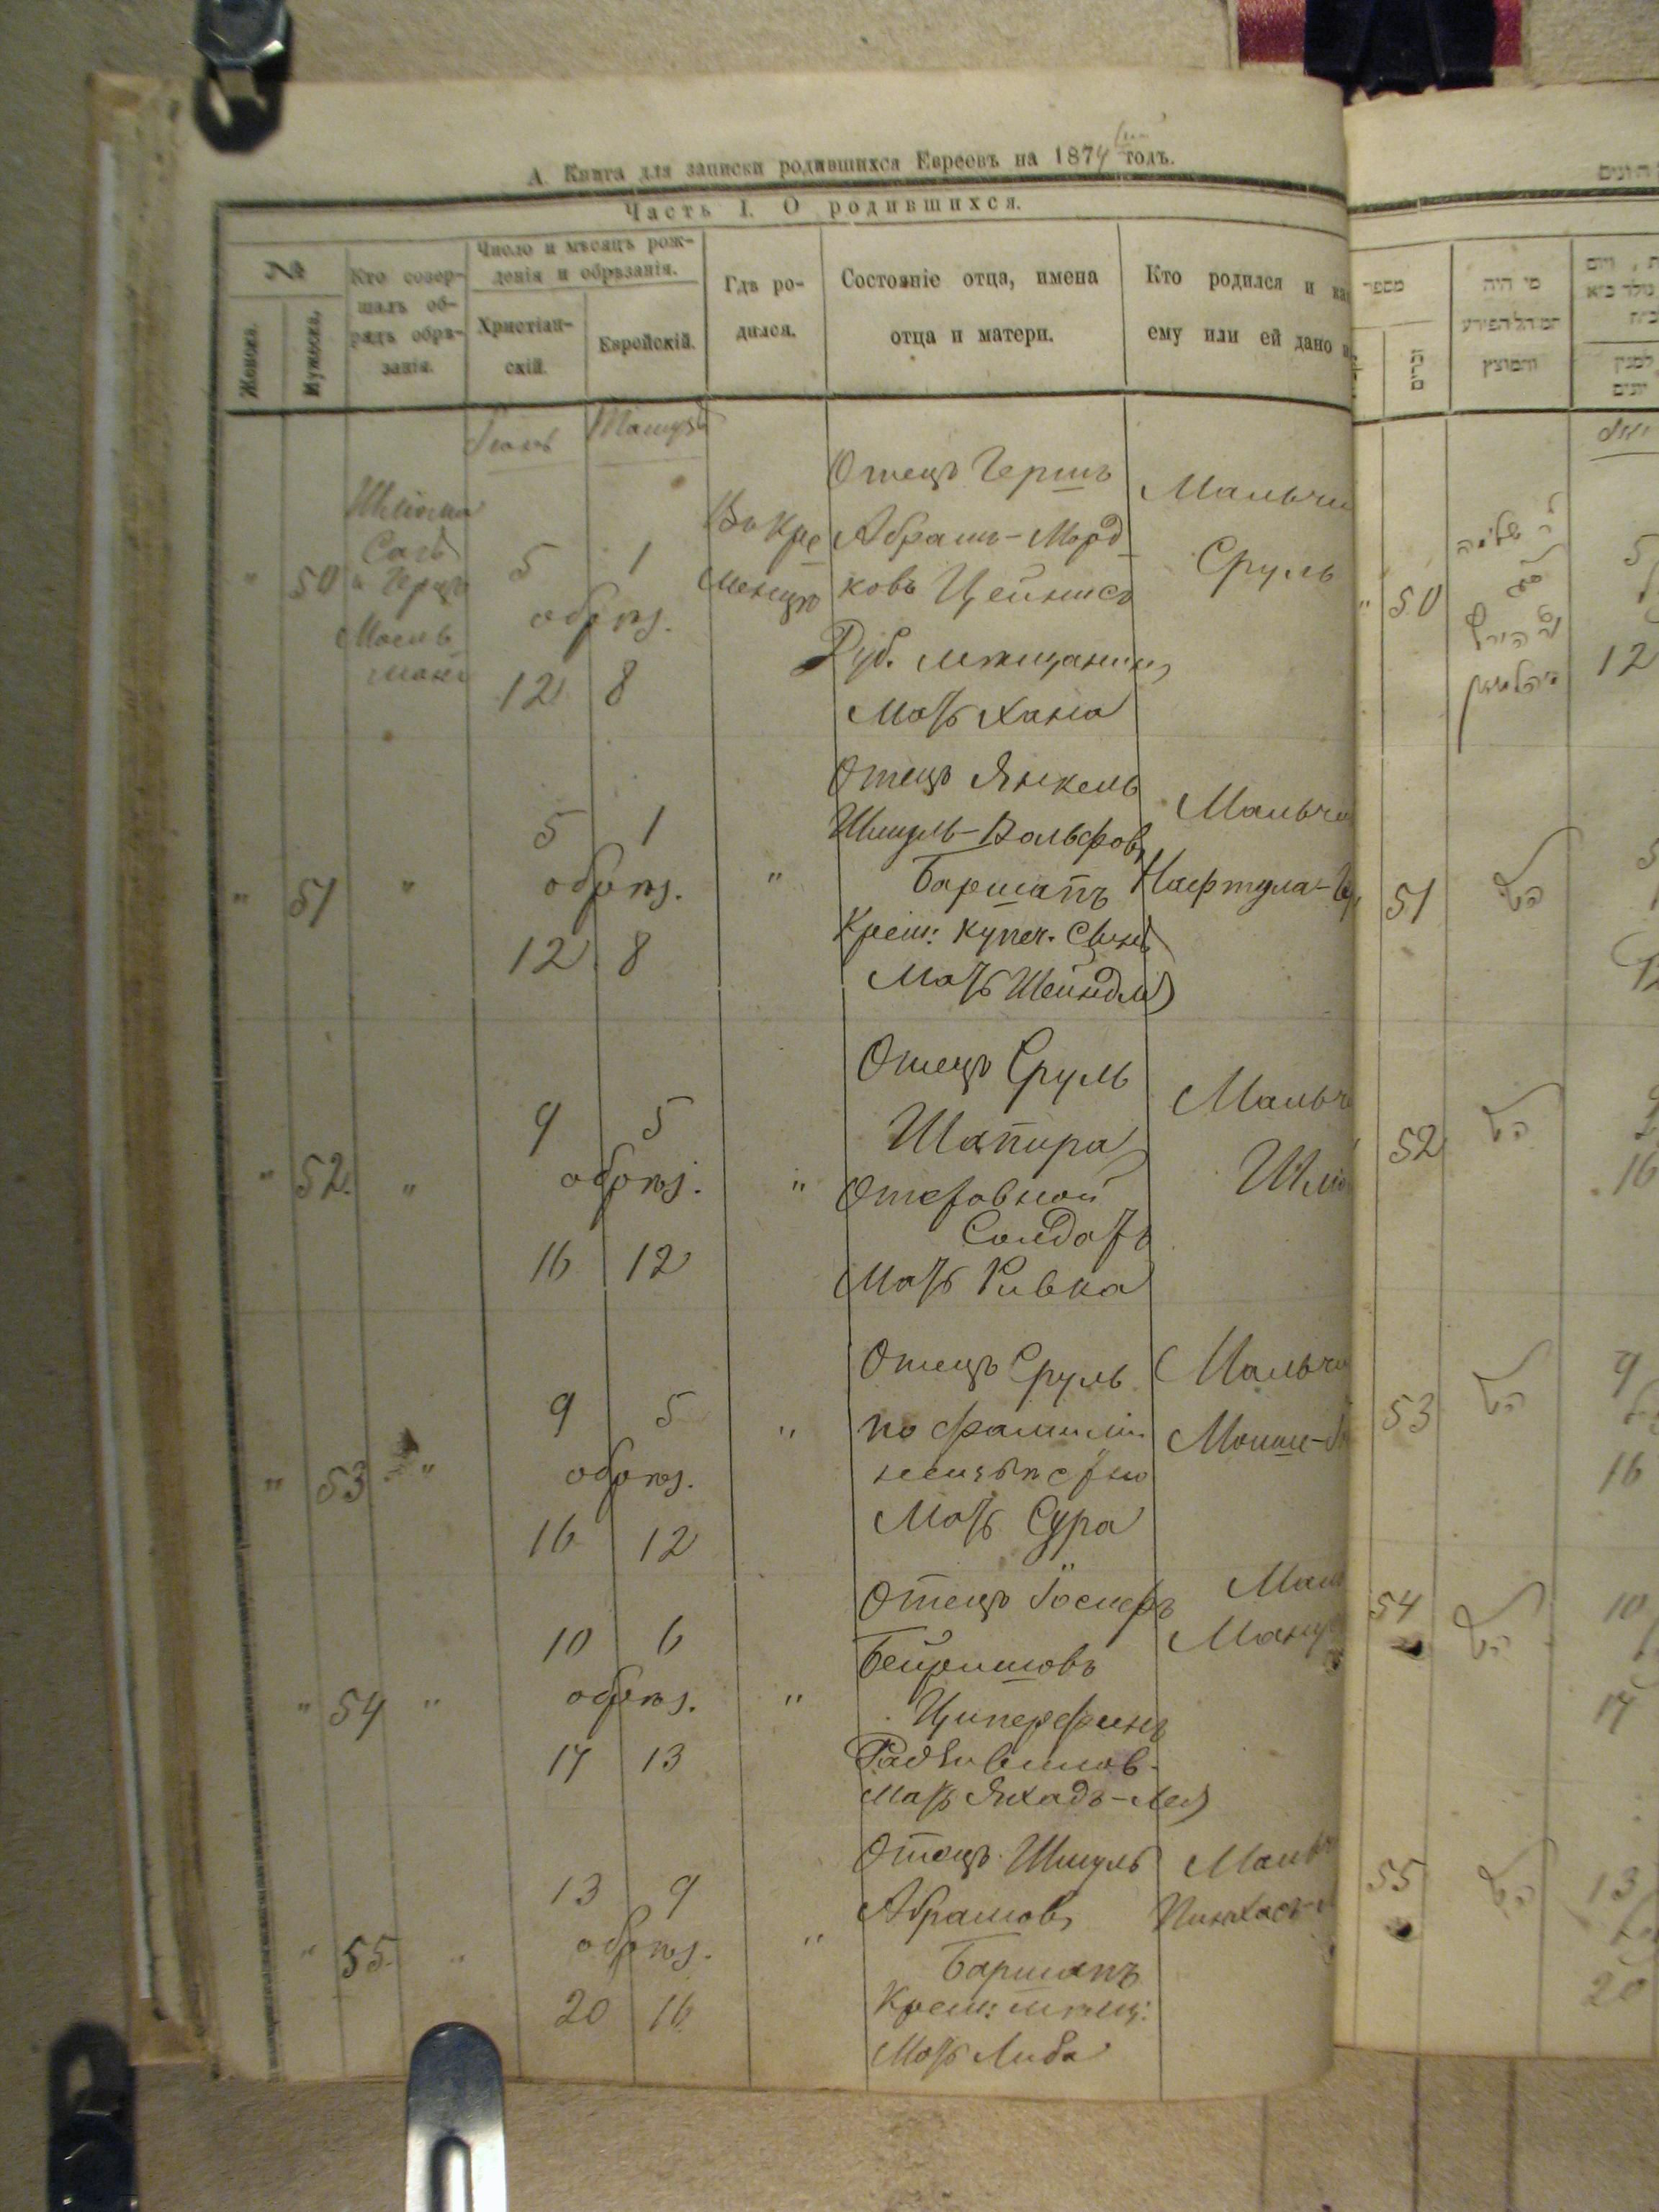 А. Книга для записки родившихся Евреевъ на 1874 годъ.
Часть I. О родившихся.
№
Женска.
Мужеска.
Кто совер-
шалъ об-
рядъ обрѣ-
занія.
Число и мѣсяцъ рож-
денія и обрѣзанія.
Христіан-
скій.
Еврейскій.
Гдѣ ро-
дился.
Состояніе отца, имена
отца и матери.
Кто родился и ка
ему или ей дано и
Тамузъ
" 50
Шліома
и Герцъ
5 1
обрѣз.
12 8
Въ Кре
менцѣ
Отецъ Гершъ
Абрамъ-Морд
ковъ Цейнисъ
Дуб. мѣщанинъ
Мать Хана
Мальчи
Сруль
" 51 "
5 1
обрѣз.
12 8
"
Отецъ Янкель
Шмуль-Вольфовъ
Баршапъ
Крем: купеч. Сынъ
Мать Шейндля
Мальчи
Нафтула-Ге
" 52. "
9 5
обрѣз.
16 12
"
Отецъ Сруль
Шапира
Отставной
Солдатъ
Мать Ривка
Мальч
Шлio
" 53 "
9 5
обрѣз.
16 12
"
Отецъ Сруль
по фамиліи
неизвѣстно
Мать Сура
Мальчи
Мошке-
" 54 "
10 6
обрѣз.
17 13
"
Отецъ Іосифъ
Бейришовъ
Циперфинъ
Радзивилов.
Мать Яхадъ-Лея
Маль
" 55. "
13 9
обрѣз.
20 16
"
Отецъ Шмуль
Абрамовъ
Баршапъ
Крем: мѣщ:
Мать Либа
Мальч
Пинхасъ-
מספר
זכרים
מי היה
המוהל הפורע
והמוצץ
" 50
5
12
51
הנ"ל
52
הנ"ל
16
53
הנ"ל
9
16
54
הנ"ל
10
17
55
הנ"ל
13
20